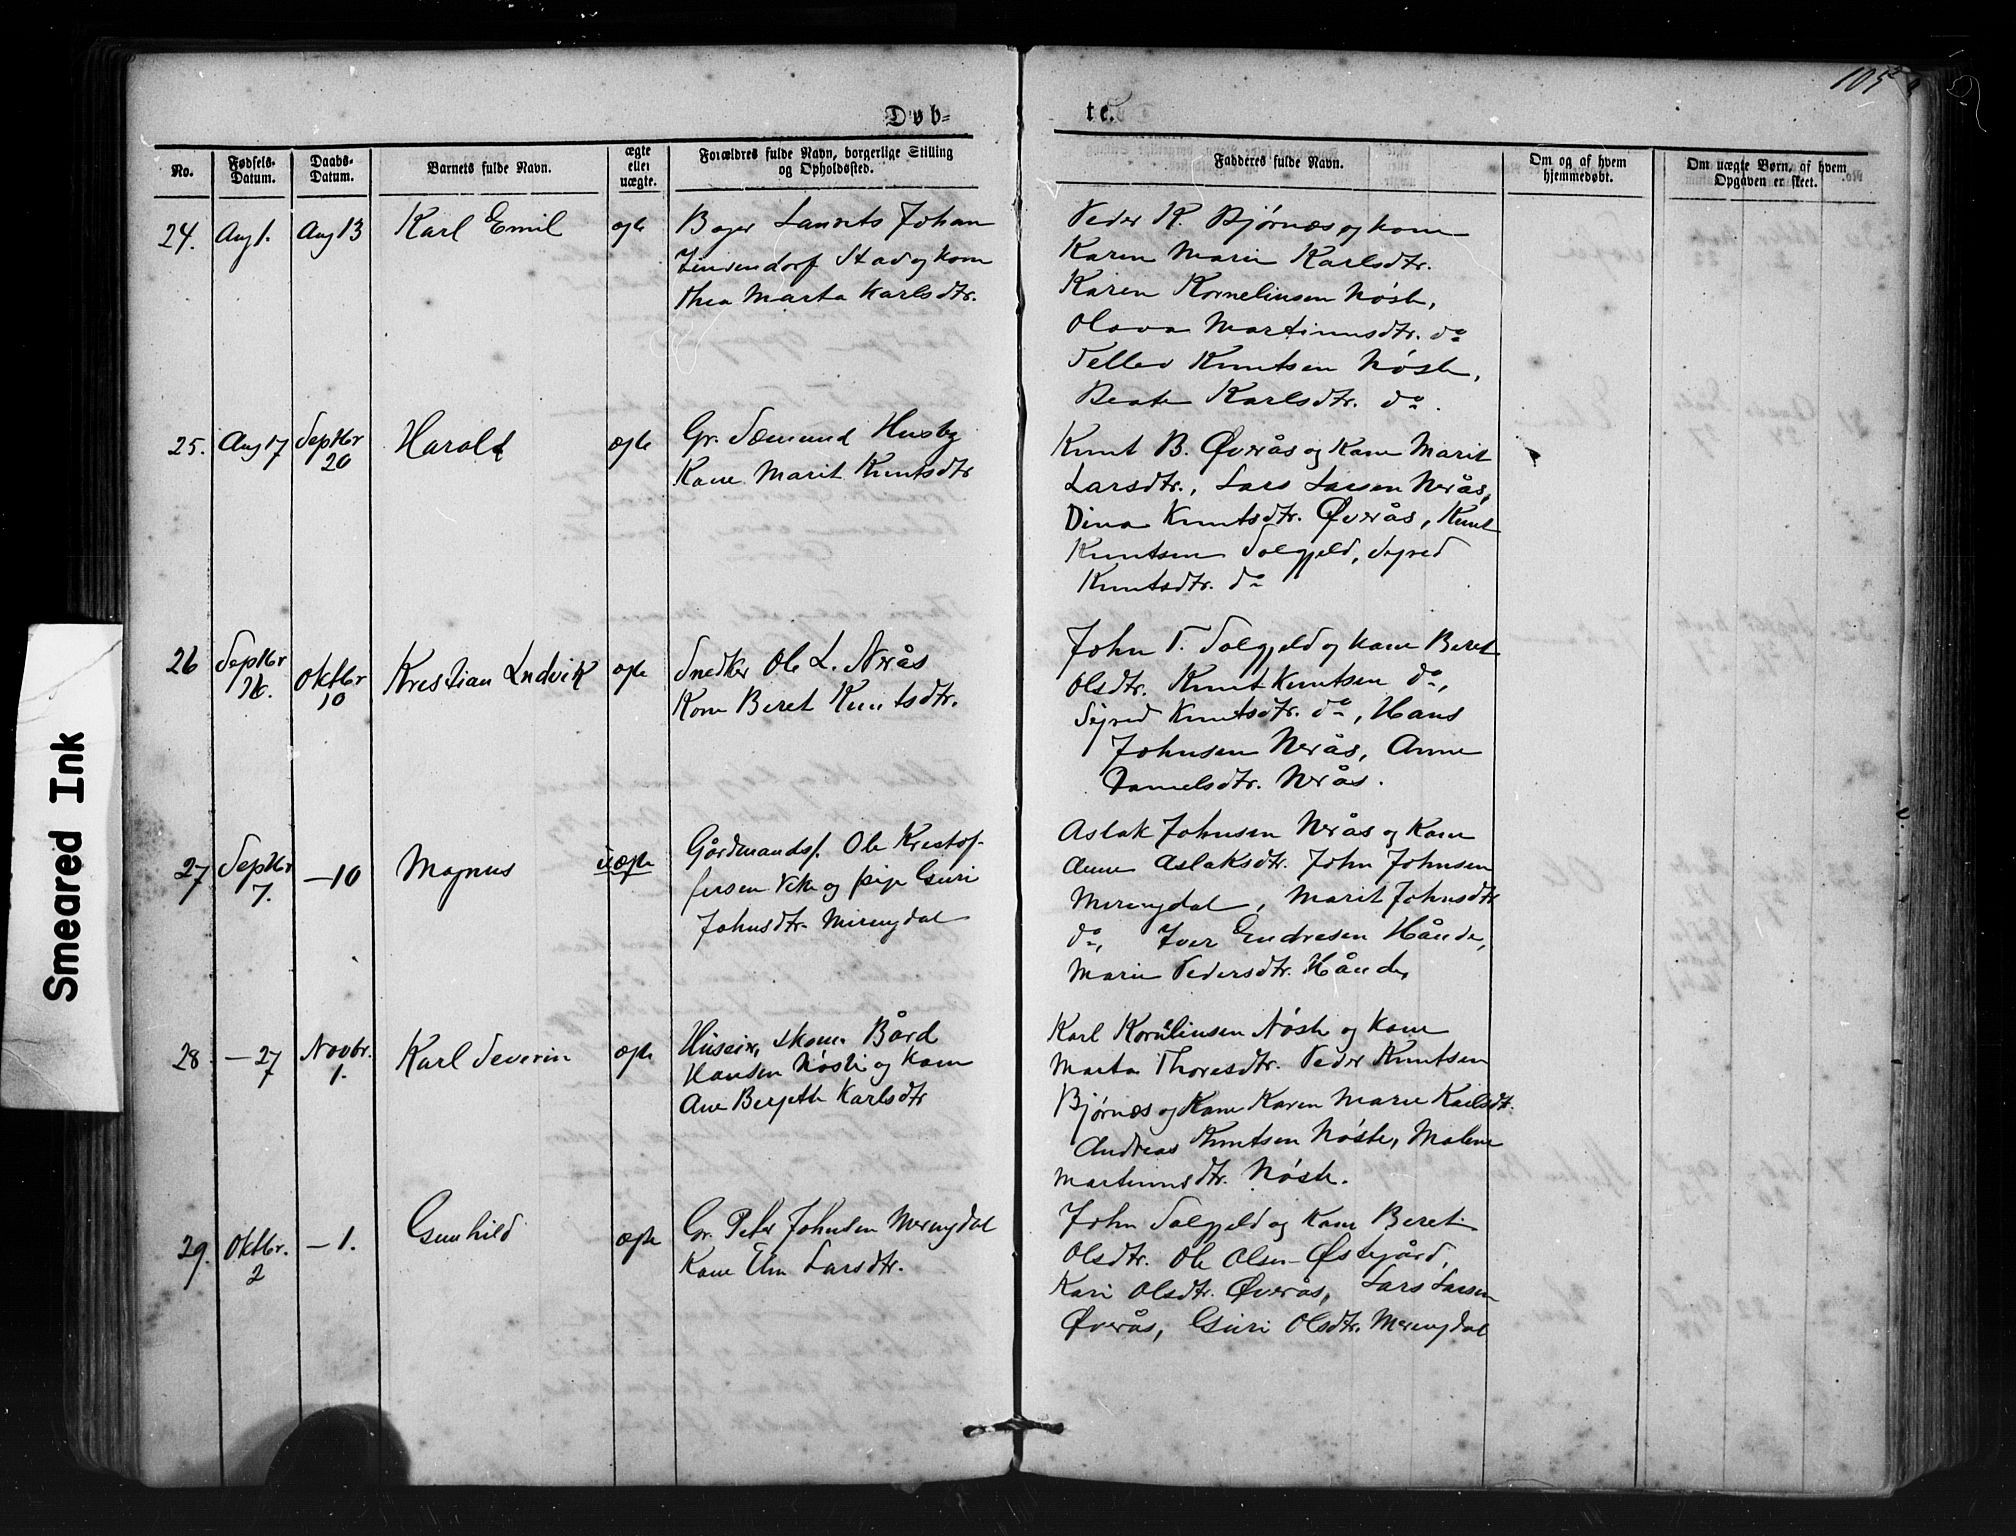 105
Døb-
te.
No.
Fødsels-
Datum.
Daabs-
Datum.
Barnets fulde Navn.
ægte
eller
uægte.
Forældres fulde Navn, borgerlige Stilling
og Opholdssted.
Fadderes fulde Navn.
Om og af hvem
hjemmedøbt.
Om uægte Børn, af hvem
Opgaven er skeet.
24.
Aug 1.
Aug 13
Karl Emil
ægte
Bager Laurits Johan
Stad og kone
Thea Marta Karlsdtr.
Peder K. Bjørnæs og kone
Karen Marie Karlsdtr.
Karen Kornelinsen Nøste,
Olava Martinusdtr. do
Tellev Knutsen Nøste,
Beate Karlsdtr. do.
25.
Aug 17
Septbr
20
Harald
ægte
Gr. Sæmund Husby
Kone Marit Knutsdtr
Knut B. Øverås og Kone Marit
Larsdtr., Lars Larsen Nerås,
Dina Knutsdtr. Øverås, Knut
Knutsen Solgjeld, Sigred
Knutsdtr. do
26
Septbr
26.
Oktbr
10
Kristian Ludvik
ægte
Snedker Ole L. Nerås
Kone Beret Knutsdtr.
John T. Solgjeld og Kone Beret
Olsdtr. Knut Knutsen do,
Sigred Knutsdtr. do, Hans
Johnsen Nerås, Anne
Danielsdtr. Nerås.
27
Septbr
7.
—10
Magnus
uægte
Gårdmands. Ole Kristof-
fersen Vike og pige Guri
Johnsdtr. Meringdal
Aslak Johnsen Nerås og Kone
Anne Aslaksdtr. John Johnsen
Meringdal, Marit Johnsdtr
do, Iver Endresen Hånde,
Marie Pedersdtr. Hånde,
28
—27
Novbr.
1.
Karl Severin
ægte
Huseier, skom. Bård
Hansen Nøste og Kone
Ane Bergette Karlsdtr
Karl Kornelinsen Nøste og Kone
Marta Thoresdtr. Peder Knutsen
Bjørnæs og Kone Karen Marie Karlsdtr.
Andreas Knutsen Nøste, Malene
Martinusdtr. Nøste.
29.
Oktbr.
2
—1.
Gunhild
ægte
Gr. Peter Johnsen Meringdal
Kone Elin Larsdtr.
John Solgjeld og Kone Beret
Olsdtr. Ole Olsen Østegård,
Kari Olsdtr. Øverås, Lars Larsen
Øverås, Guri Olsdtr. Meringdal
Smeared Ink